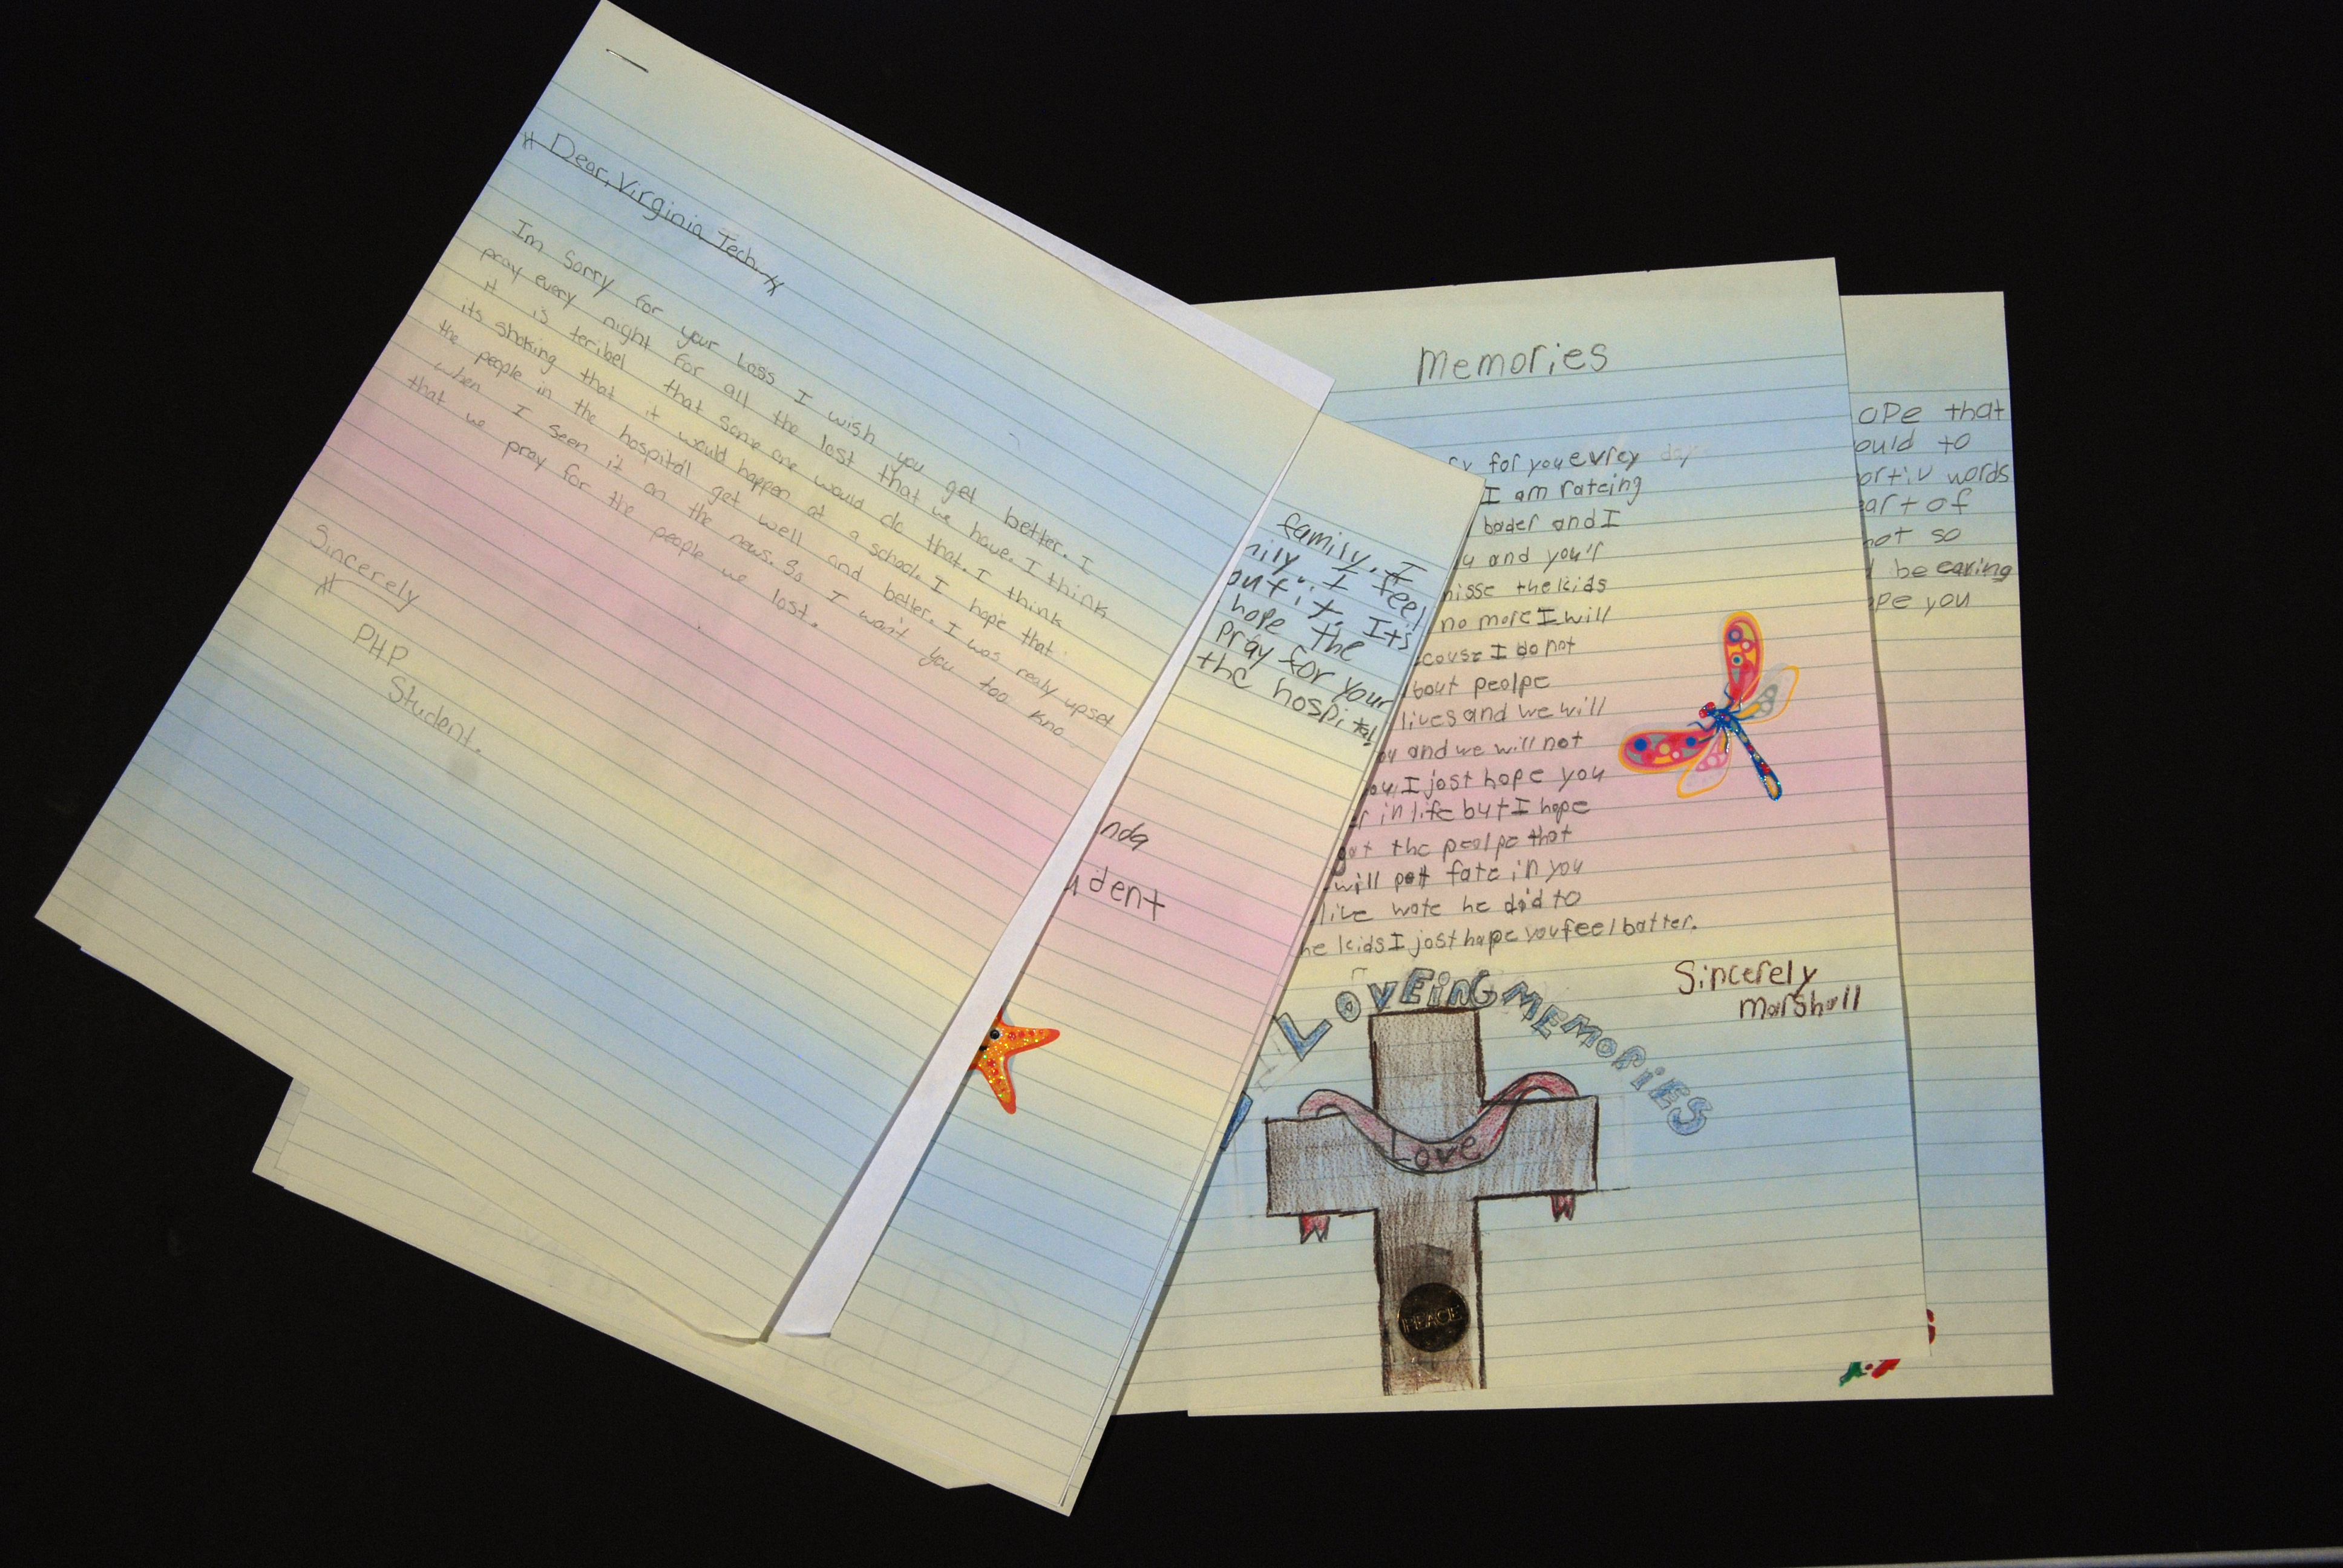 Dear, Virginia Tech.
Im Sorry for your Loss I wish you get better. I
pray every night for all the lost that we have. I think
it is teribel that some one would do that. I think
its shoking that it would happen at a school. I hope that
the people in the hospital get well and better. I was realy upset
when I seen it on the news. So I want you too kno
that we pray for the people we lost.
Sincerely
PHP
Student.
family. I
nily. I feel
out it. Its
hope the
pray for your
the hospital
nda
udent
Memories
for you evrey day
I am rateing
bader and I
and you'r
nisse the kids
no more I will
couse I do not
bout peolpe
lives and we will
ou and we will not
ou I jost hope you
er in life but I hope
got the peolpe that
will pot fate in you
live wate he did to
he kids I jost hope you feel batter.
Sincerely
Marshall
LOVEING MEMORIES
Love
PEACE
ope that
ould to
ortiv words
art of
not so
be caring
pe you